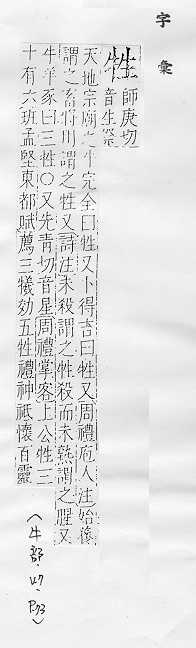 字彙
牲 師庚切
音生祭
天地宗廟之牛完全曰牲又卜得吉曰牲又周禮庖人注始養
謂之畜將用謂之牲又詩注未殺謂之牲殺而未熟謂之腥又
牛羊豕曰三牲○又先靑切音星周禮掌客上公牲三
十有六班孟堅東都賦薦三犧効五牲禮神祗懷百靈
(牛部,四,P.73)